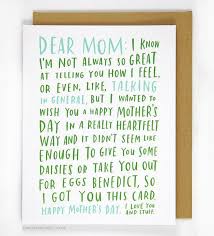 DEAR MOM: I KNOW
I'M NOT ALWAYS SO GREAT
AT TELLING YOU HOW I FEEL,
OR EVEN, LIKE, TALKING
IN GENERAL, BUT I WANTED TO
WISH YOU A HAPPY MOTHER'S
DAY IN A REALLY HEARTFELT
WAY AND IT DIDN'T SEEM LIKE
ENOUGH TO GIVE YOU SOME
DAISIES OR TAKE YOU OUT
FOR EGGS BENEDICT, SO
I GOT YOU THIS CARD.
HAPPY MOTHER'S DAY. I LOVE YOU
AND STUFF.